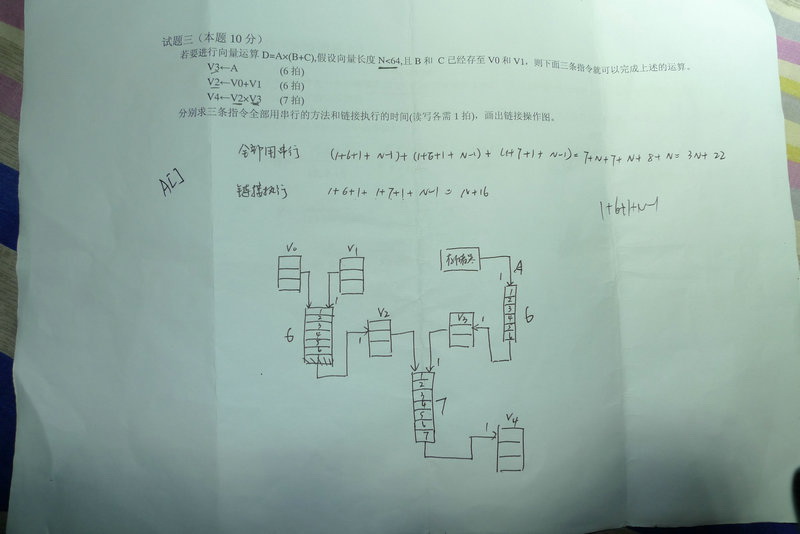 试题三（本题10分）
若要进行向量运算 D=A×(B+C),假设向量长度 N<64,且 B 和 C 已经存至 V0 和 V1，则下面三条指令就可以完成上述的运算。
V3←A (6拍)
V2←V0+V1 (6拍)
V4←V2×V3 (7拍)
分别求三条指令全部用串行的方法和链接执行的时间(读写各需1拍)，画出链接操作图。
全部用串行 (1+6+1+N-1)+(1+6+1+N-1)+(1+7+1+N-1)=7+N+7+N+8+N=3N+22
A[]
链接执行 1+6+1+1+7+1+N-1=N+16
1+6+1+N-1
V0 V1
存储器 A
1
1
6
1
2
3
4
5
6
1
V2
V3
1
1
2
3
4
5
6
6
1
1
2
3
4
5
6
7
7
1
V4